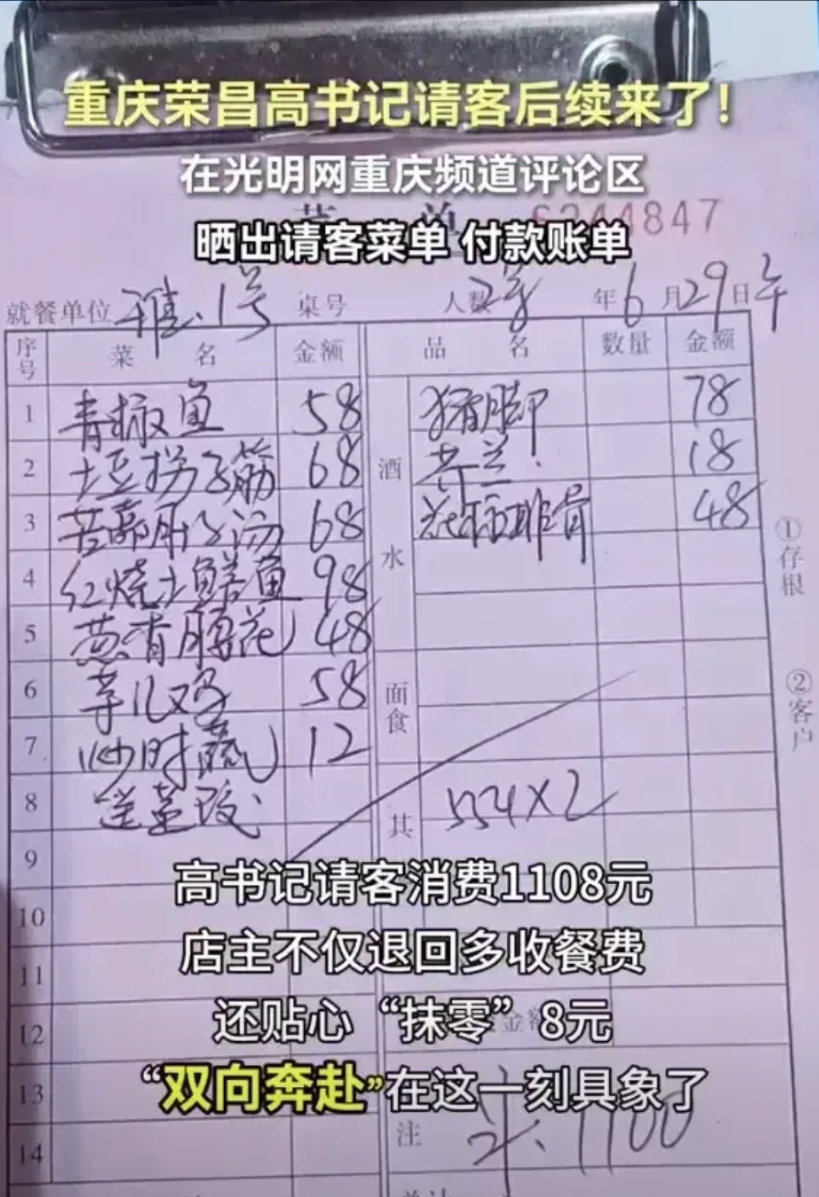 重庆荣昌高书记请客后续来了！
在光明网重庆频道评论区
菜单 6244847
晒出请客菜单 付款账单
就餐单位 雅.1号 桌号 人数 2桌 年6月29日午
序号 菜名 金额 品名 数量 金额
1 青椒鱼 58 猪脚 78
2 拐子筋 68 酒 18
3 肝子汤 68 排骨 48
4 红烧土鳝鱼 98 水
5 腰花 48
6 芋儿鸡 58 面食
7 炒时蔬 12
8 送 其 554×2
9
高书记请客消费1108元
10
店主不仅退回多收餐费
11
还贴心“抹零”8元
12 金额
“双向奔赴”在这一刻具象了
13
14 注 1100
①存根
②客户